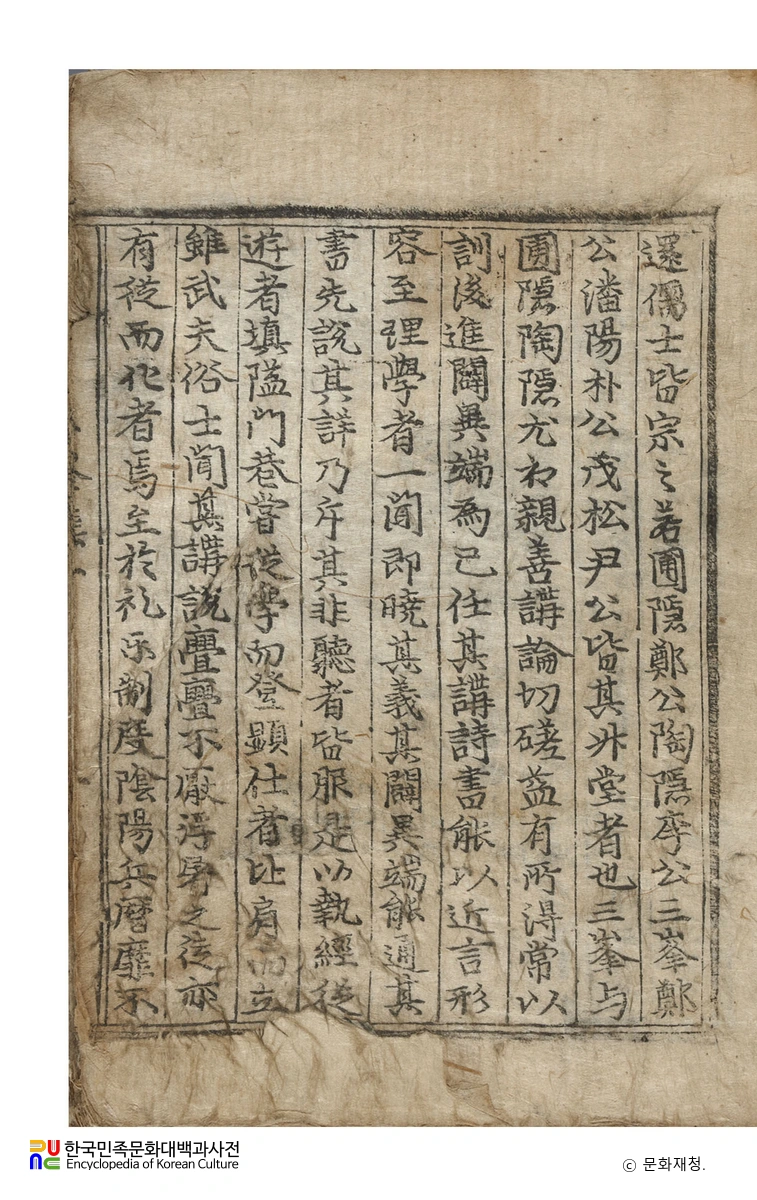 還儒士皆宗之若圃隠鄭公陶隠李公三峯鄭
公潘陽朴公茂松尹公皆其升堂者也三峯与
圃隠陶隠尤相親善講論切磋益有所得常以
訓後進闢異端為己任其講詩書能以近言形
容至理學者一聞即曉其義其闢異端能通其
書先說其詳乃斥其非聽者皆服是以執經從
遊者填隘門巷嘗從學而登顕仕者比肩而立
雖武夫俗士聞其講說亹亹不厭浮屠之徒亦
有從而化者焉至於礼乐制度陰陽兵曆靡不
한국민족문화대백과사전
Encyclopedia of Korean Culture
© 문화재청.